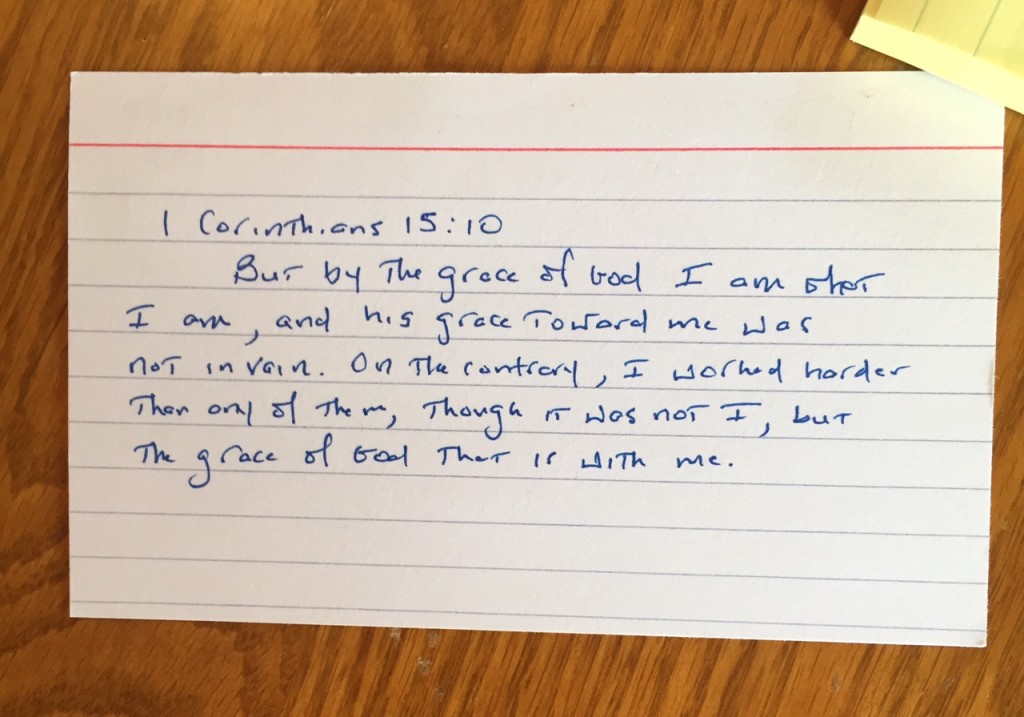 1 Corinthians 15:10
But by The grace of God I am what
I am, and his grace Toward me was
not in vain. On The contrary, I worked harder
Than any of Them, Though it was not I, but
The grace of God That is with me.